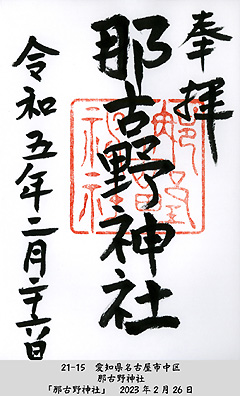 奉拝
那古野神社
令和五年二月二十六日
21-15 愛知県名古屋市中区
那古野神社
「那古野神社」 2023年2月26日